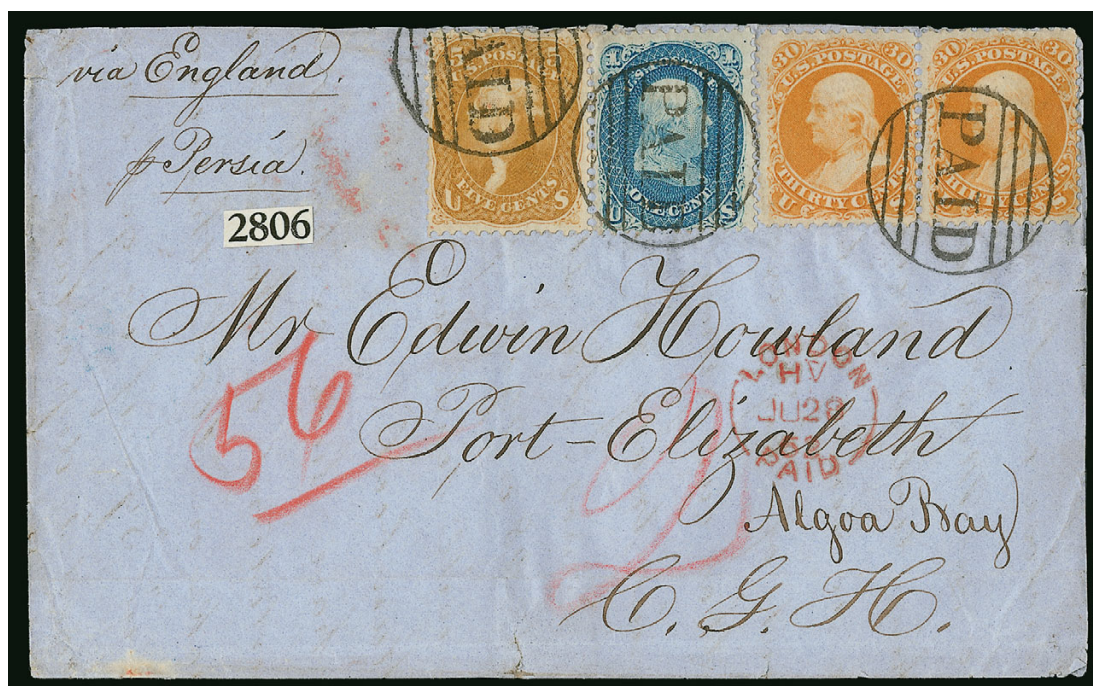 via England.
p Persia.
2806
5 5
U.S. POSTAGE
FIVE CENTS
U S
PAID
1 1
ONE CENT
U
PAID
30 30
U.S. POSTAGE
THIRTY CENTS
U
30 30
U.S. POSTAGE
THIRTY CENTS
S
PAID
Mr Edwin Howland
Port-Elizabeth
Algoa Bay
C. G. H.
56
2
LONDON
HV
JU 28
PAID